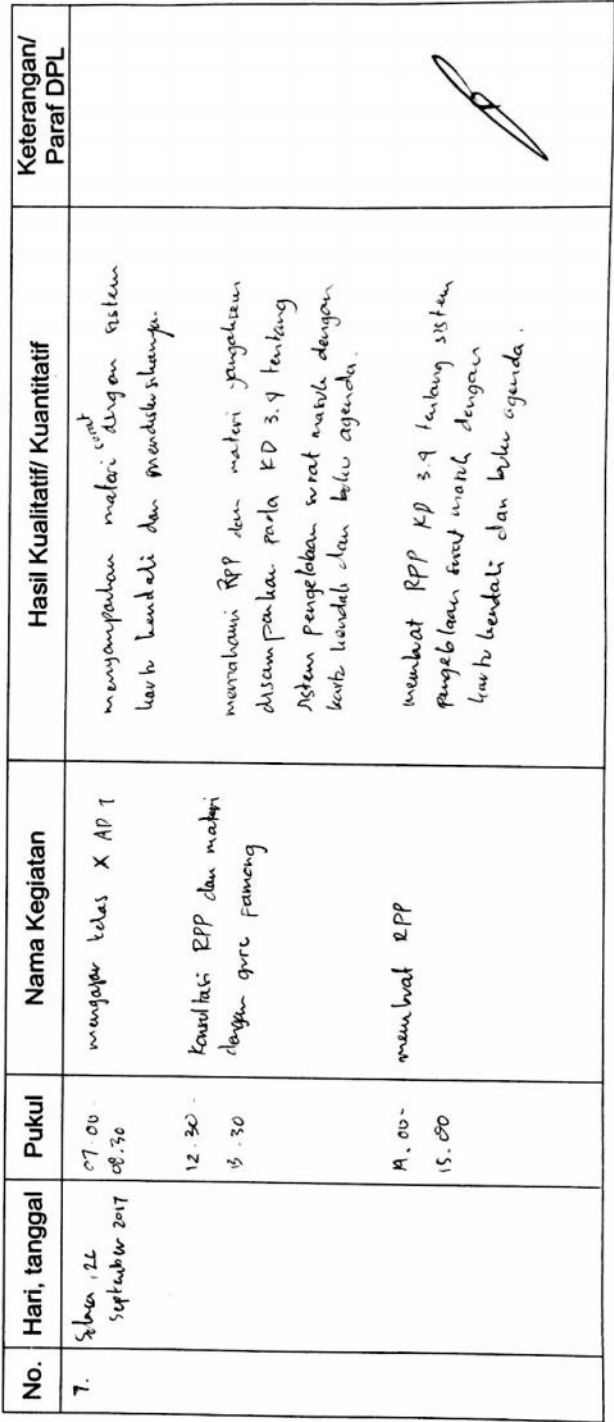 No.
Hari, tanggal
Pukul
Nama Kegiatan
Hasil Kualitatif/ Kuantitatif
Keterangan/
Paraf DPL
7.
September 2017
07.00 -
08.30
mengajar kelas X AP 1
menyampaikan materi surat dengan sistem
kartu kendali dan mendiskusikannya.
12.30 -
13.30
Konsultasi RPP dan materi
dengan guru pamong
memahami RPP dan materi yang akan
disampaikan pada KD 3.4 tentang
sistem pengelolaan surat masuk dengan
kartu kendali dan buku agenda.
15.00
membuat RPP
membuat RPP KD 3.4 tentang sistem
pengelolaan surat masuk dengan
kartu kendali dan buku agenda.